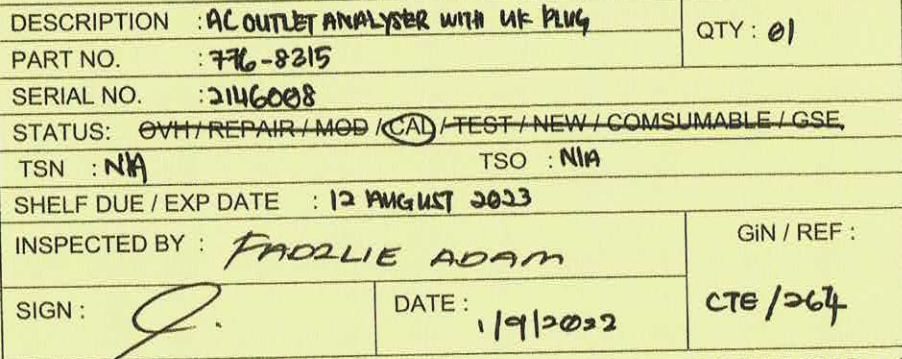 DESCRIPTION : AC OUTLET ANALYSER WITH UK PLUG
QTY : 01
PART NO. : 776-8315
SERIAL NO. : 2146008
STATUS: OVH / REPAIR / MOD / CAL / TEST / NEW / COMSUMABLE / GSE
TSN : N/A TSO : N/A
SHELF DUE / EXP DATE : 12 AUGUST 2023
INSPECTED BY : FADZLIE ADAM
GiN / REF :
CTE / 267
SIGN :
DATE : 1/9/2022